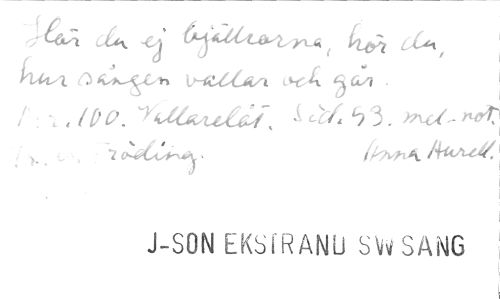 Hör du ej bjällrorna, hör du,
hur sången vallar och går.
Nr. 100. Vallarelåt. Sid. 93. mel-not.
Fröding. Anna Hurell.
J-SON EKSTRAND SW SANG